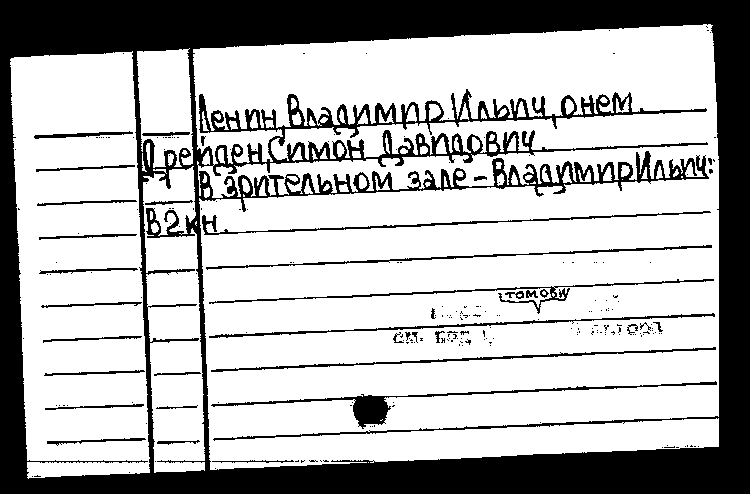 Ленин, Владимир Ильич, о нем.
Дрейден, Симон Давидович.
В зрительном зале - Владимир Ильич:
В 2 кн.
см. под
автора